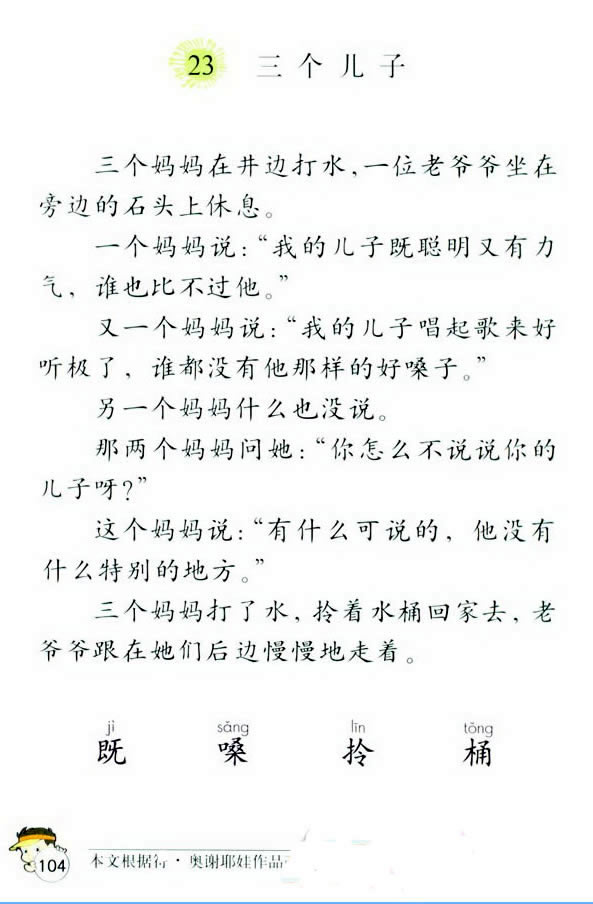 23 三个儿子
三个妈妈在井边打水,一位老爷爷坐在
旁边的石头上休息。
一个妈妈说:“我的儿子既聪明又有力
气,谁也比不过他。”
又一个妈妈说:“我的儿子唱起歌来好
听极了,谁都没有他那样的好嗓子。”
另一个妈妈什么也没说。
那两个妈妈问她:“你怎么不说说你的
儿子呀?”
这个妈妈说:“有什么可说的,他没有
什么特别的地方。”
三个妈妈打了水,拎着水桶回家去,老
爷爷跟在她们后边慢慢地走着。
jì sǎng līn tǒng
既 嗓 拎 桶
104 本文根据 · 奥谢耶娃作品